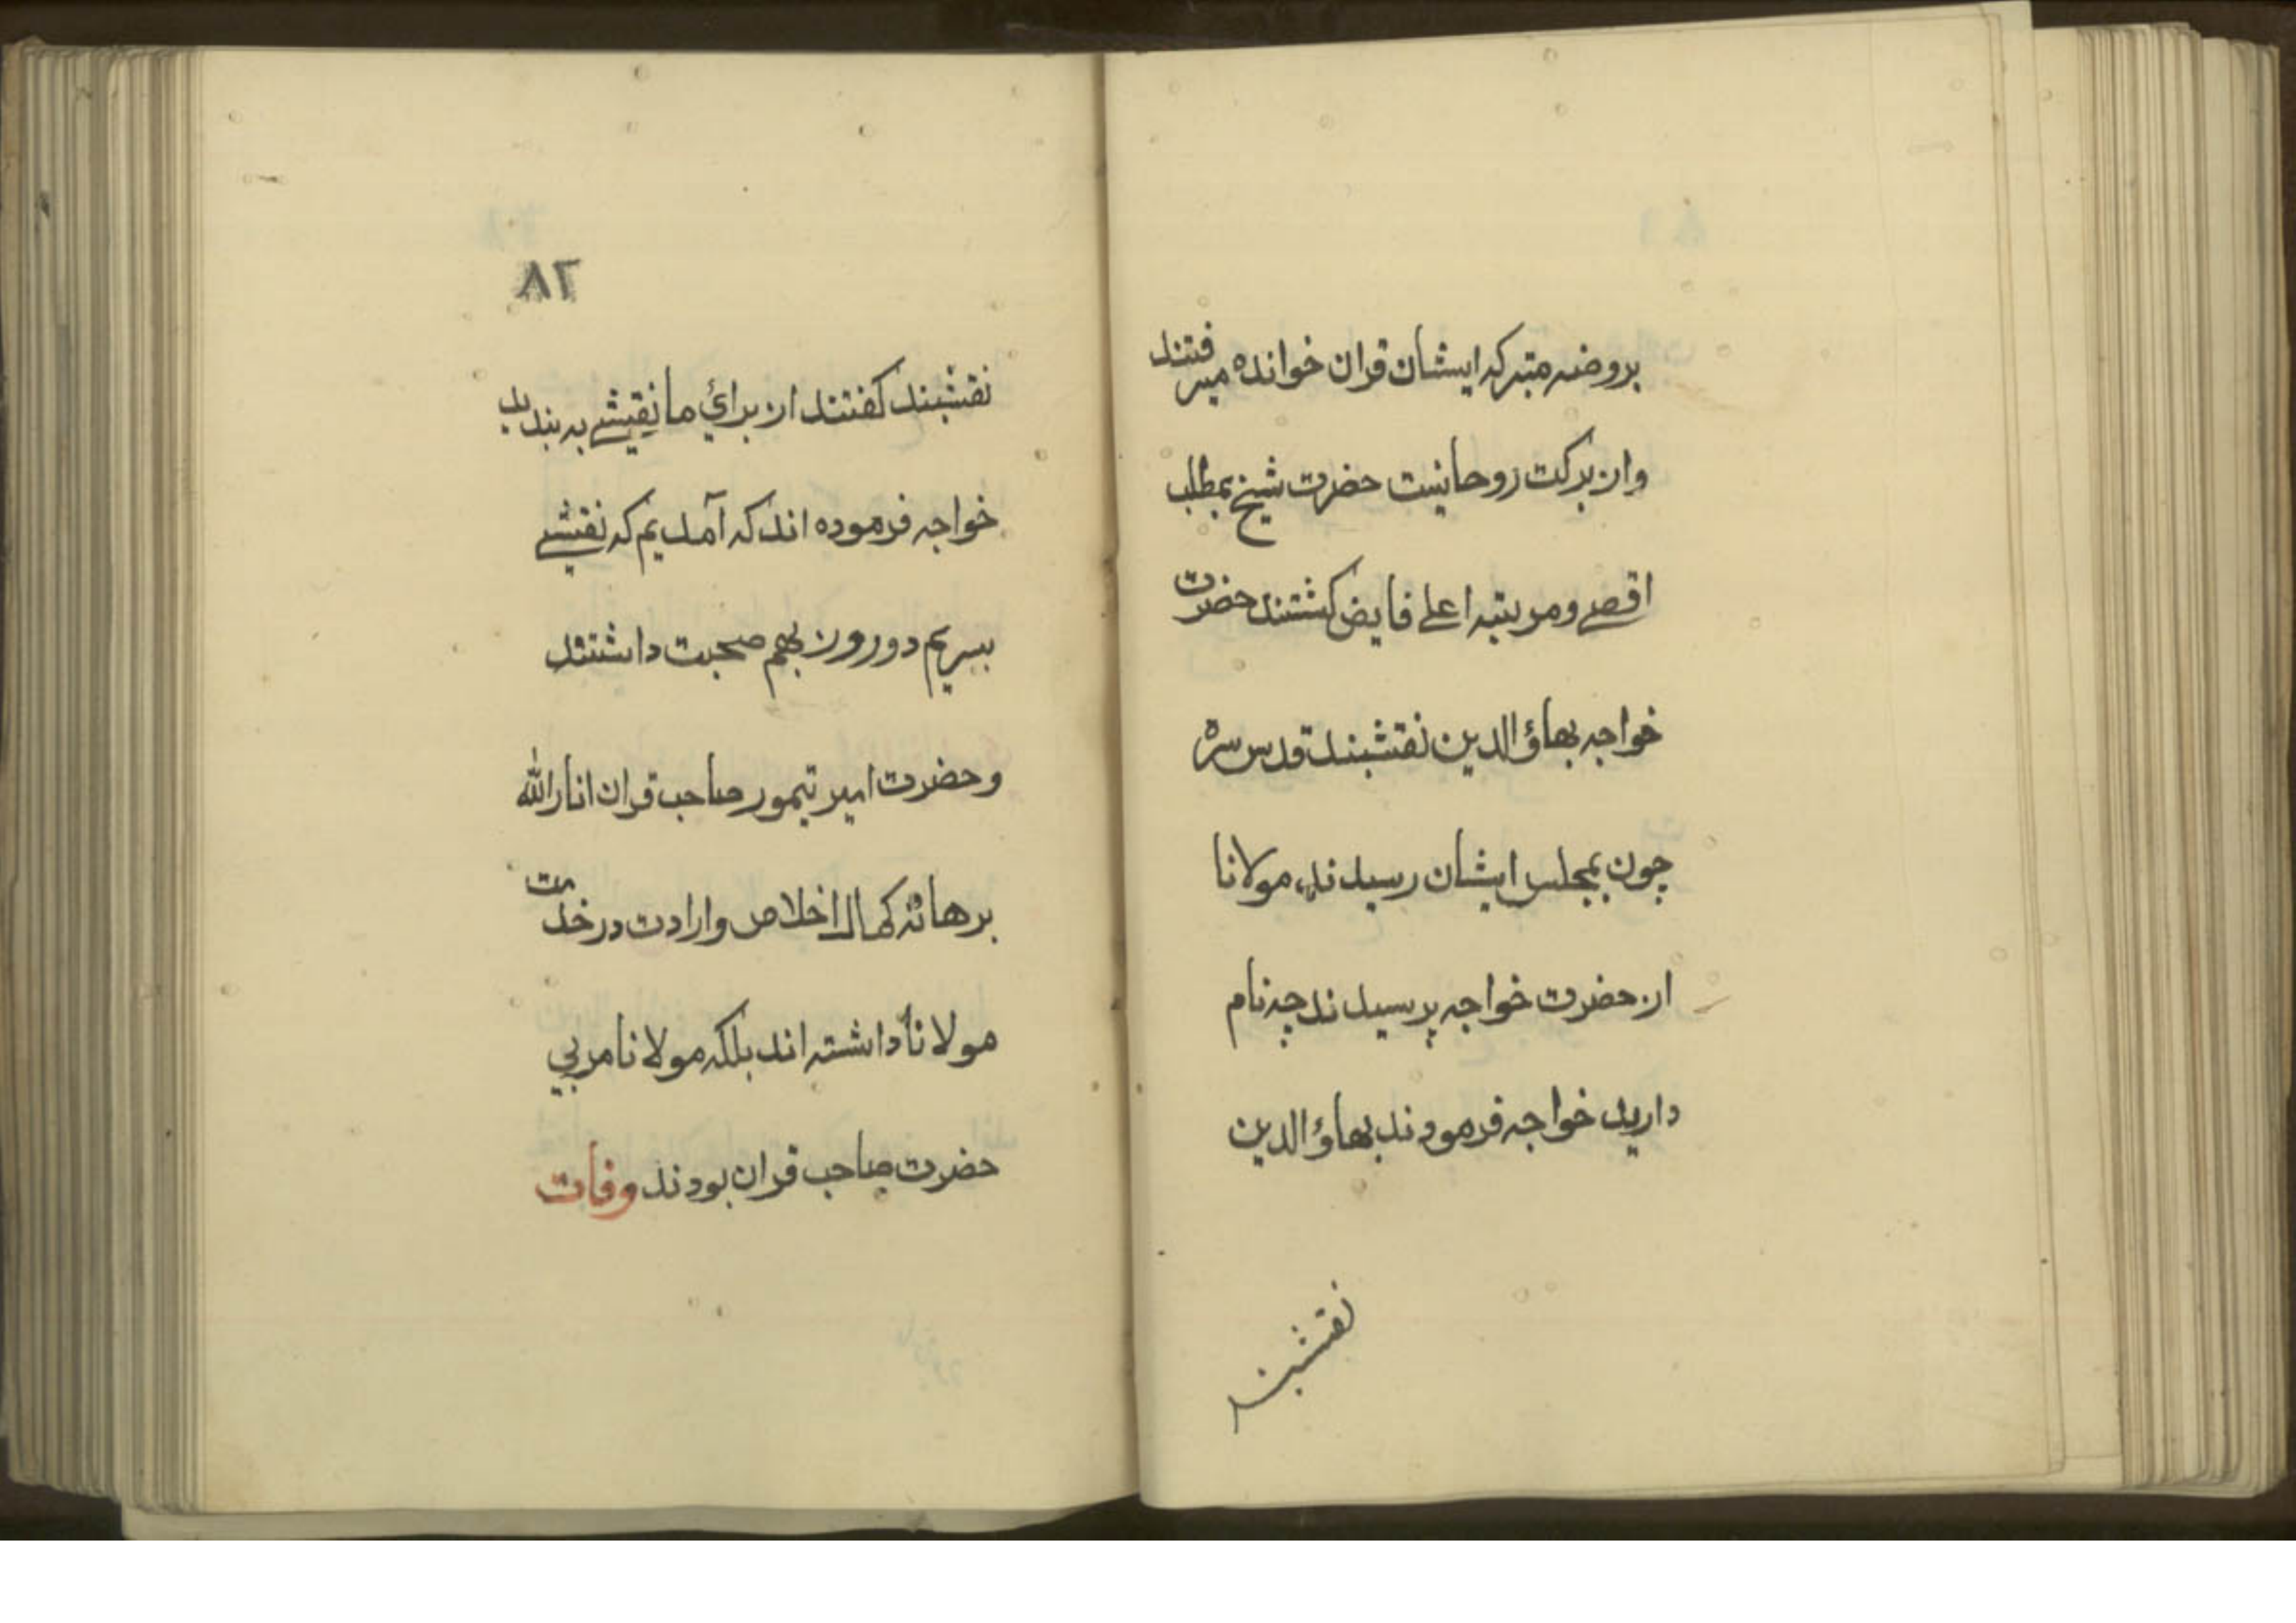 بروضه متبرکه ایشان قران خوانده میرفتند
وازبرکت روحانیت حضرت شیخ بمطلب
اقصے ومرتبه اعلے فایض کشتند حضرت
خواجه بهاؤالدین نقشبند قدس سره
چون بمجلس ایشان رسیدند، مولانا
از حضرت خواجه پرسیدند چه نام
دارید خواجه فرمودند بهاؤالدین
نقشبند
٨٢
نقشبند کفتند از برائ ما نقیشے به بندید
خواجه فرموده اند که آمدیم که نقشے
ببریم دوروز بهم صحبت داشتند
وحضرت امیر تیمور صاحب قران انارالله
برهانه کمال اخلاص وارادت درخدمت
مولانا داشته اند بلکه مولانا مربی
حضرت صاحب قران بودند وفات